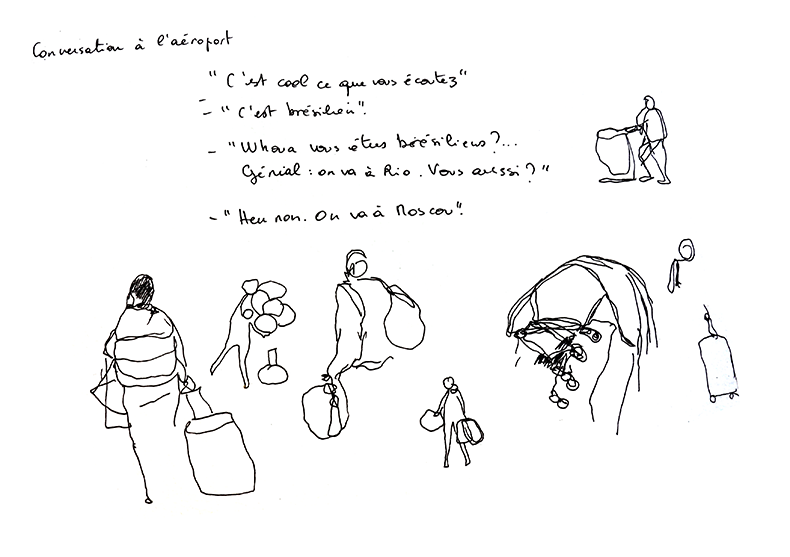 Conversation à l'aéroport
"C'est cool ce que vous écoutez"
- "C'est brésilien".
- "Whoua vous êtes brésiliens?...
Génial : on va à Rio. Vous aussi?"
- "Heu non. On va à Moscou".